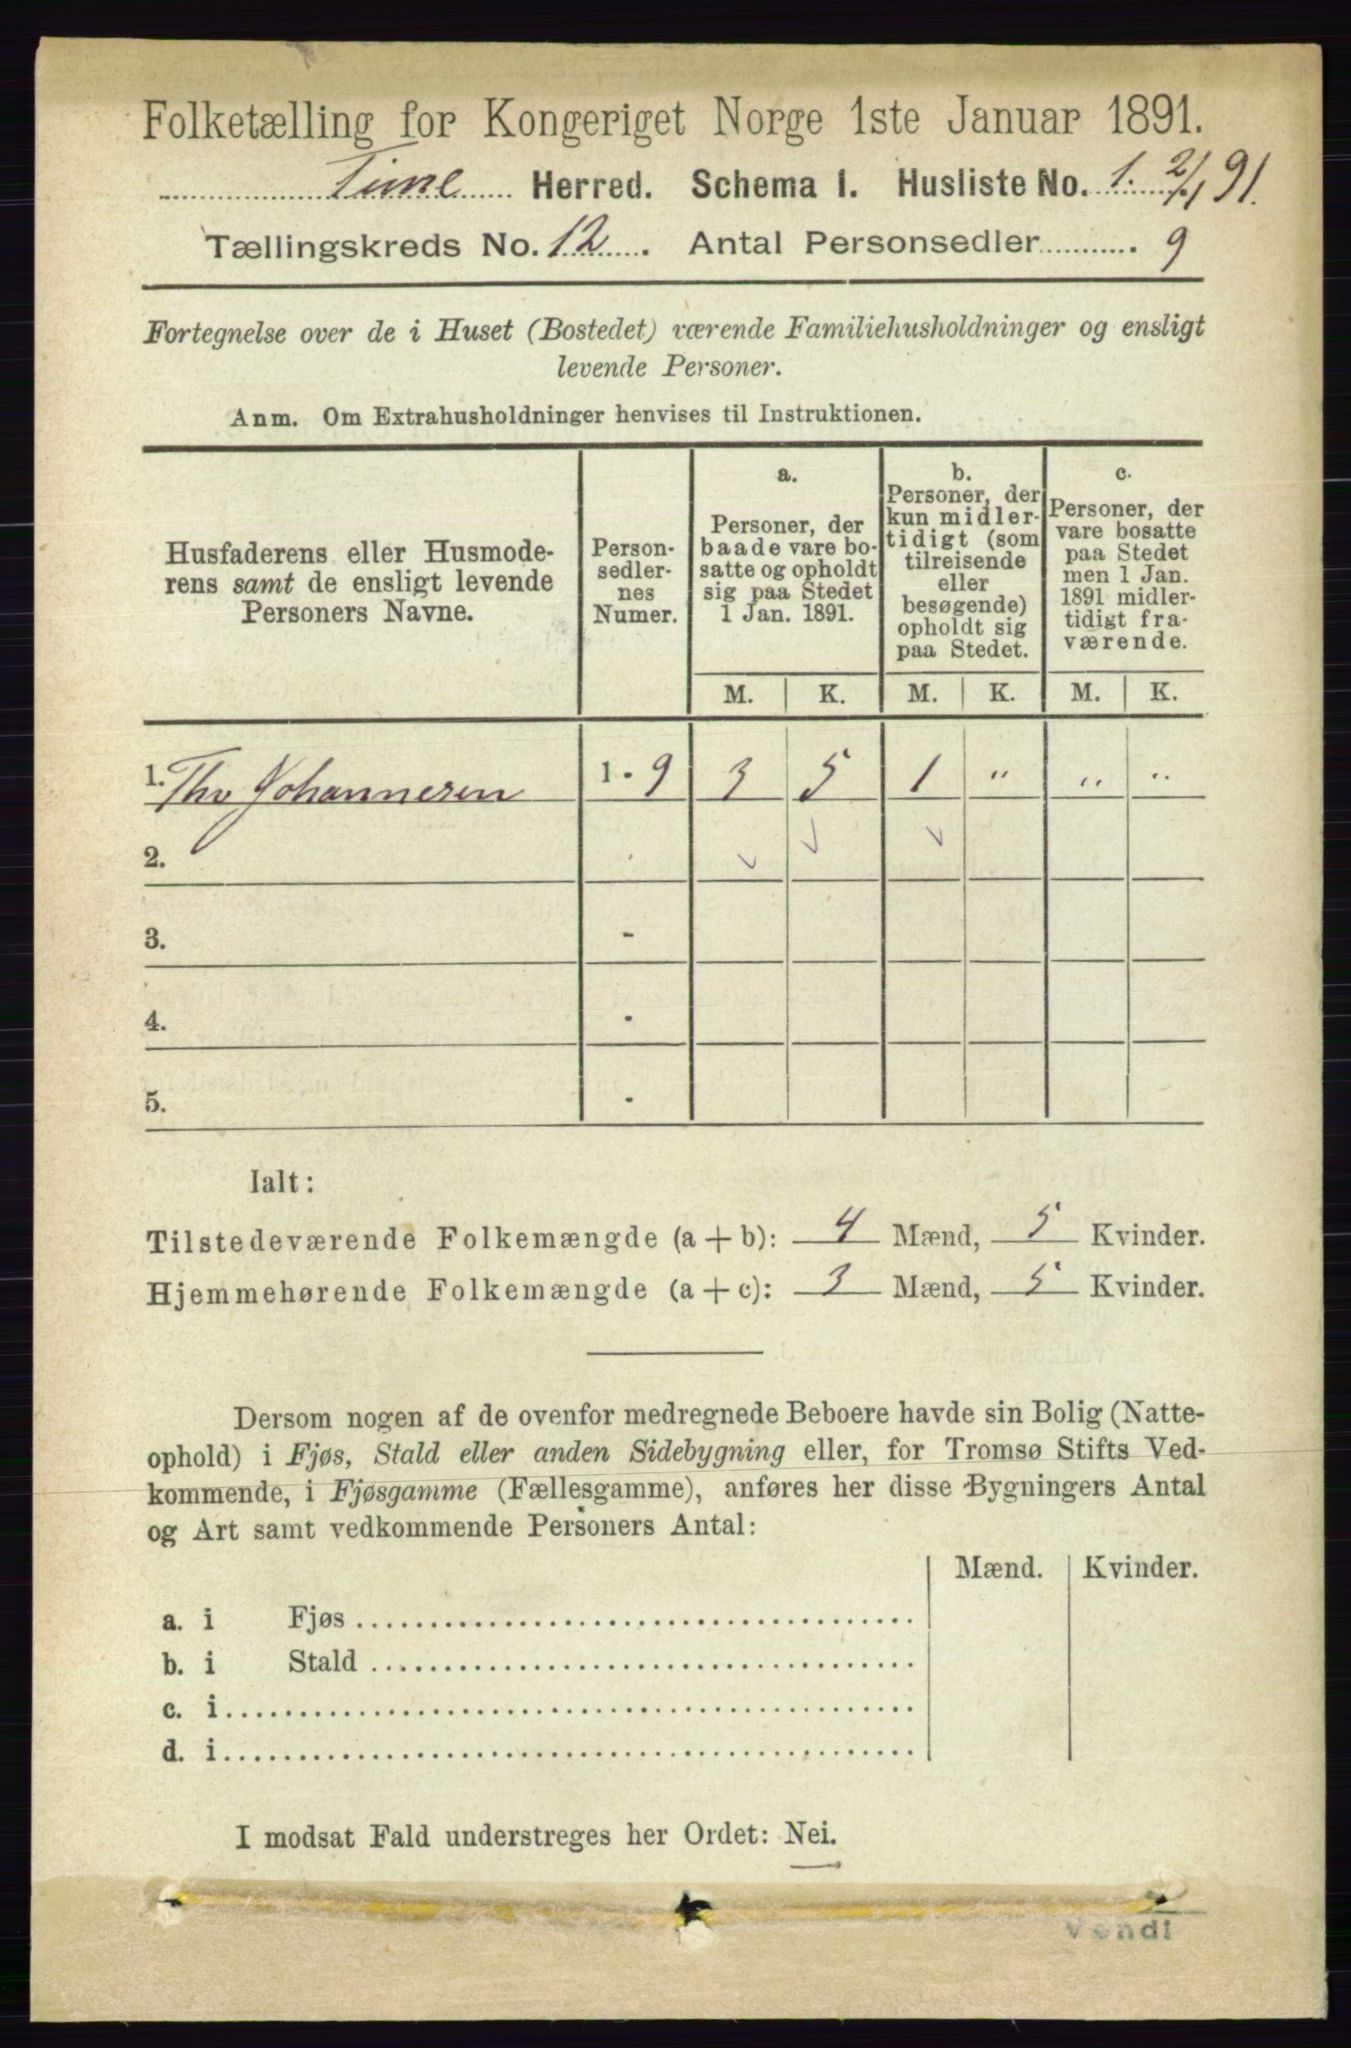 Folketælling for Kongeriget Norge 1ste Januar 1891.
Time Herred. Schema 1. Husliste No. 1. 2/1 91.
Tællingskreds No. 12. Antal Personsedler 9
Fortegnelse over de i Huset (Bostedet) værende Familiehusholdninger og ensligt
levende Personer.
Anm. Om Extrahusholdninger henvises til Instruktionen.
Husfaderens eller Husmode-
rens samt de ensligt levende
Personers Navne.
Person-
sedler-
nes
Numer.
a.
Personer, der
baade vare bo-
satte og opholdt
sig paa Stedet
1 Jan. 1891.
b.
Personer, der
kun midler-
tidigt (som
tilreisende
eller
besøgende)
opholdt sig
paa Stedet.
c.
Personer, der
vare bosatte
paa Stedet
men 1 Jan.
1891 midler-
tidigt fra-
værende.
M. K. M. K. M. K.
1. Johannesen 1 - 9 3 5 1 " " "
2.
3. -
4. -
5. -
Ialt:
Tilstedeværende Folkemængde (a + b): 4 Mænd, 5 Kvinder.
Hjemmehørende Folkemængde (a + c): 3 Mænd, 5 Kvinder.
Dersom nogen af de ovenfor medregnede Beboere havde sin Bolig (Natte-
ophold) i Fjøs, Stald eller anden Sidebygning eller, for Tromsø Stifts Ved-
kommende, i Fjøsgamme (Fællesgamme), anføres her disse Bygningers Antal
og Art samt vedkommende Personers Antal:
Mænd. Kvinder.
a. i Fjøs
b. i Stald
c. i
d. i
I modsat Fald understreges her Ordet: Nei.
Vendi